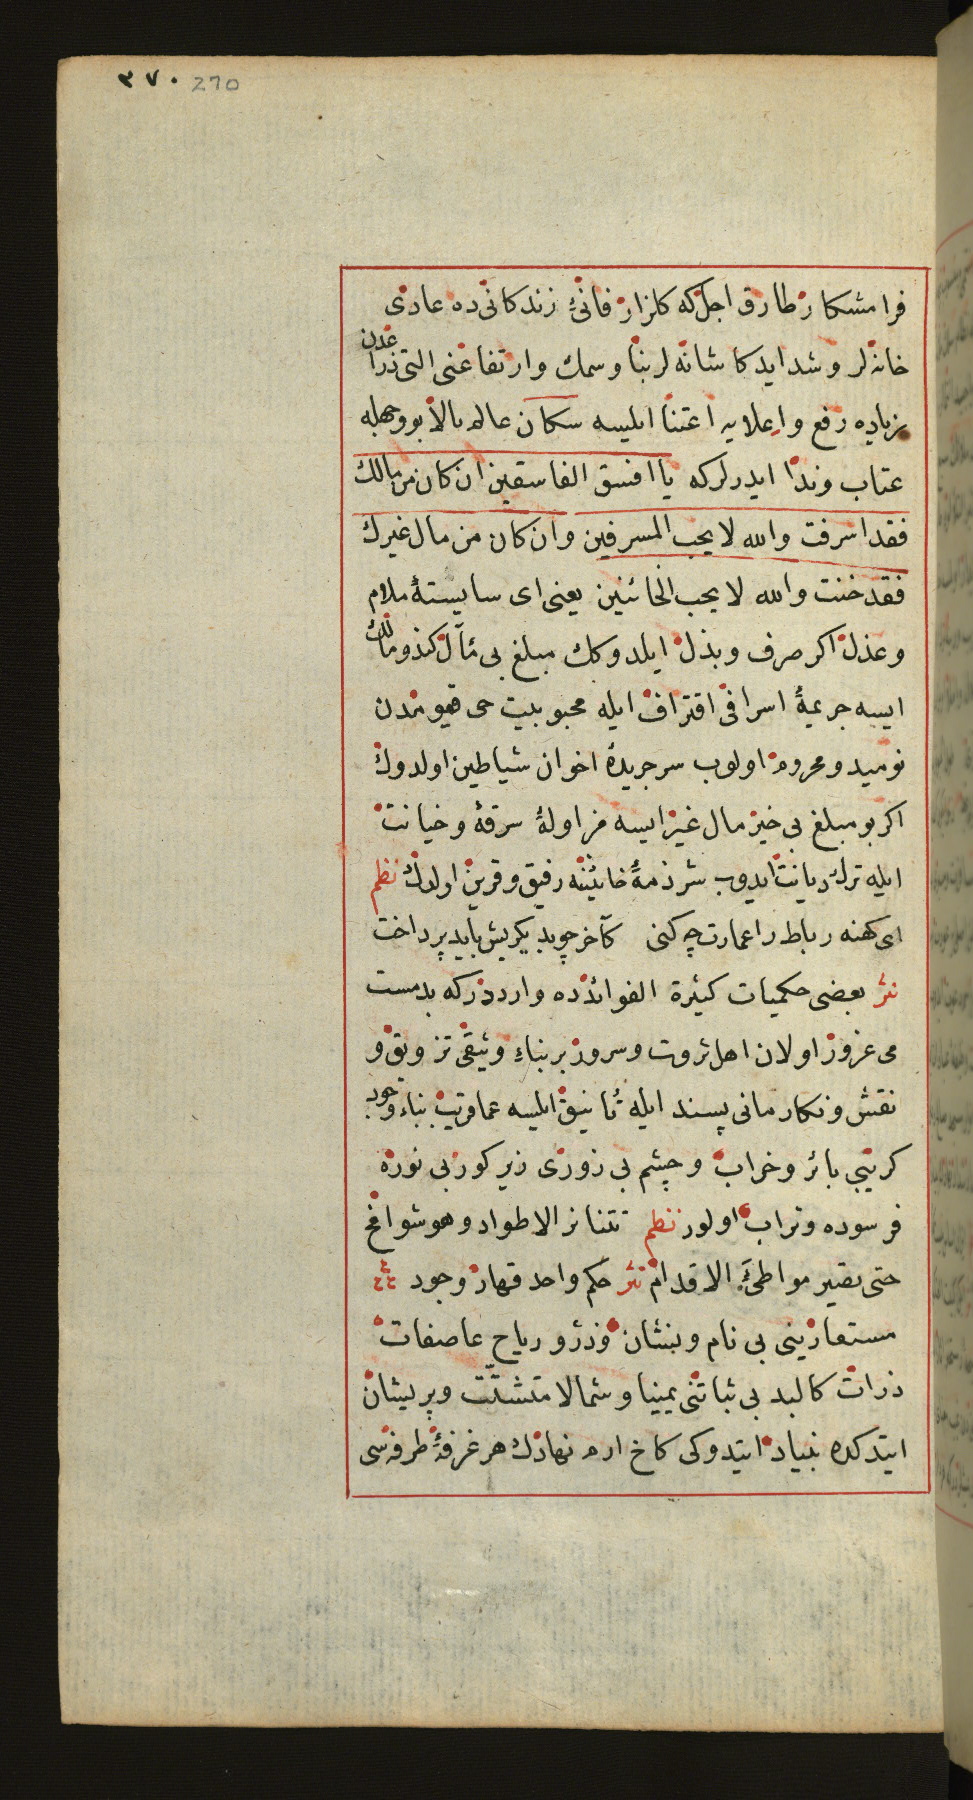 ٢٧٠ 270
فرامشكار طارق اجل كه كلزار فانئ زندكانى ده عادى
خانه لر و شدايد كاشانه لر بنا و سمك وارتفاعنى التى ذراعدن
زياده رفع واعلايه اعتنا ايليسه سكان عالم بالا بو وجهله
عتاب وندا ايدرلركه يا افسق الفاسقين ان كان من مالك
فقد اسرفت والله لا يحب المسرفين وان كان من مال غيرك
فقد خنت والله لا يحب الخائنين يعنى اى سايستهٔ ملام
وعذل اكر صرف وبذل ايلدوكك مبلغ بى مآل كندو مالك
ايسه جريمهٔ اسرافى اقتراف ايله محبوبيت حى قيومدن
نوميد ومحروم اولوب سر جريدهٔ اخوان شياطين اولدوك
اكر بو مبلغ بى خير مال غير ايسه مزاولهٔ سرقه و خيانت
ايله ترك ديانت ايدوب شرذمهٔ خائنينه رفيق وقرين اولدك نظم
اى كهنه رباط را عمارت چه كنى كآخر چو بديكريش بايد پرداخت
نثر بعضى حكميات كثيرة الفوائدده وارددركه بدمست
مى غرور اولان اهل ثروت و سرور بر بناء وثيقى تزويق و
نقش ونكار مانى پسند ايله تانيق ايليسه عماقريب بناء وجود
كرتيبى بائر و خراب و چشم بى زورى زير كور بى نورده
فرسوده وتراب اولور نظم تتناثر الاطواد وهو شوامخ
حتى يصير مواطئ الاقدام نثر حكم واحد قهار وجود
مستعارينى بى نام وبنشان وذرو رياح عاصفات
ذرات كالبد بى ثباتنى يمينا وشمالا متشتّت وپريشان
ايتدكده بنياد ايتدوكى كاخ ارم نهادك هر غرفهٔ طرفه سى